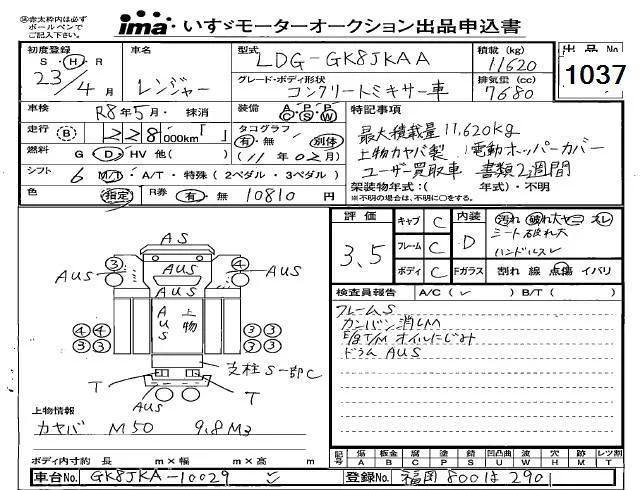 ㊟赤太枠内は必ずボールペンでご記入下さい。
ima いすゞモーターオークション出品申込書
初度登録 S・H・R 23/4月
車名 レンジャー
型式 LDG-GK8JKAA
積載(kg) 11620
出品No. 1037
グレード・ボディ形状 コンクリートミキサー車
排気量(cc) 7680
車検 R8年5月・抹消
装備 A/C P/S P/W
特記事項
走行 B 228,000km「 」
タコグラフ 有・無 別体 (11年02月)
最大積載量11,620kg
上物カヤバ製 電動ホッパーカバー
燃料 G D HV 他( )
ユーザー買取車 書類2週間
シフト 6 M/T・A/T・特殊(2ペダル・3ペダル)
架装物年式:( 年式)・不明
※不明の場合は、不明に○をする。
色 指定 R券 有・無 10810円
評価 3.5
キャブ C
フレーム C
ボディ C
内装 D
Fガラス
汚れ 破れ大 ヤコ スレ
シート破れ大
ハンドルスレ
割れ 線 点傷 イバリ
検査員報告 A/C(レ) B/T( )
フレームS
カンバン消しM
E/g T/M オイルにじみ
ドラム AUS
AS
AUS
③ ④
AUS AUS
AUS
AUS 上物
④④ ③③
③③ ③③
支柱S一部C
T T
AUS
上物情報
カヤバ M50 9.8M3
ボディ内寸約 長 m×幅 m×高 m
記号 瘍 A 板金 B 腐 C 塗 P 錆 S 凹凸曲 U 波 W 穴 H 跡 M レツ割 T
車台No. GK8JKA-10029
登録No. 福岡800は290